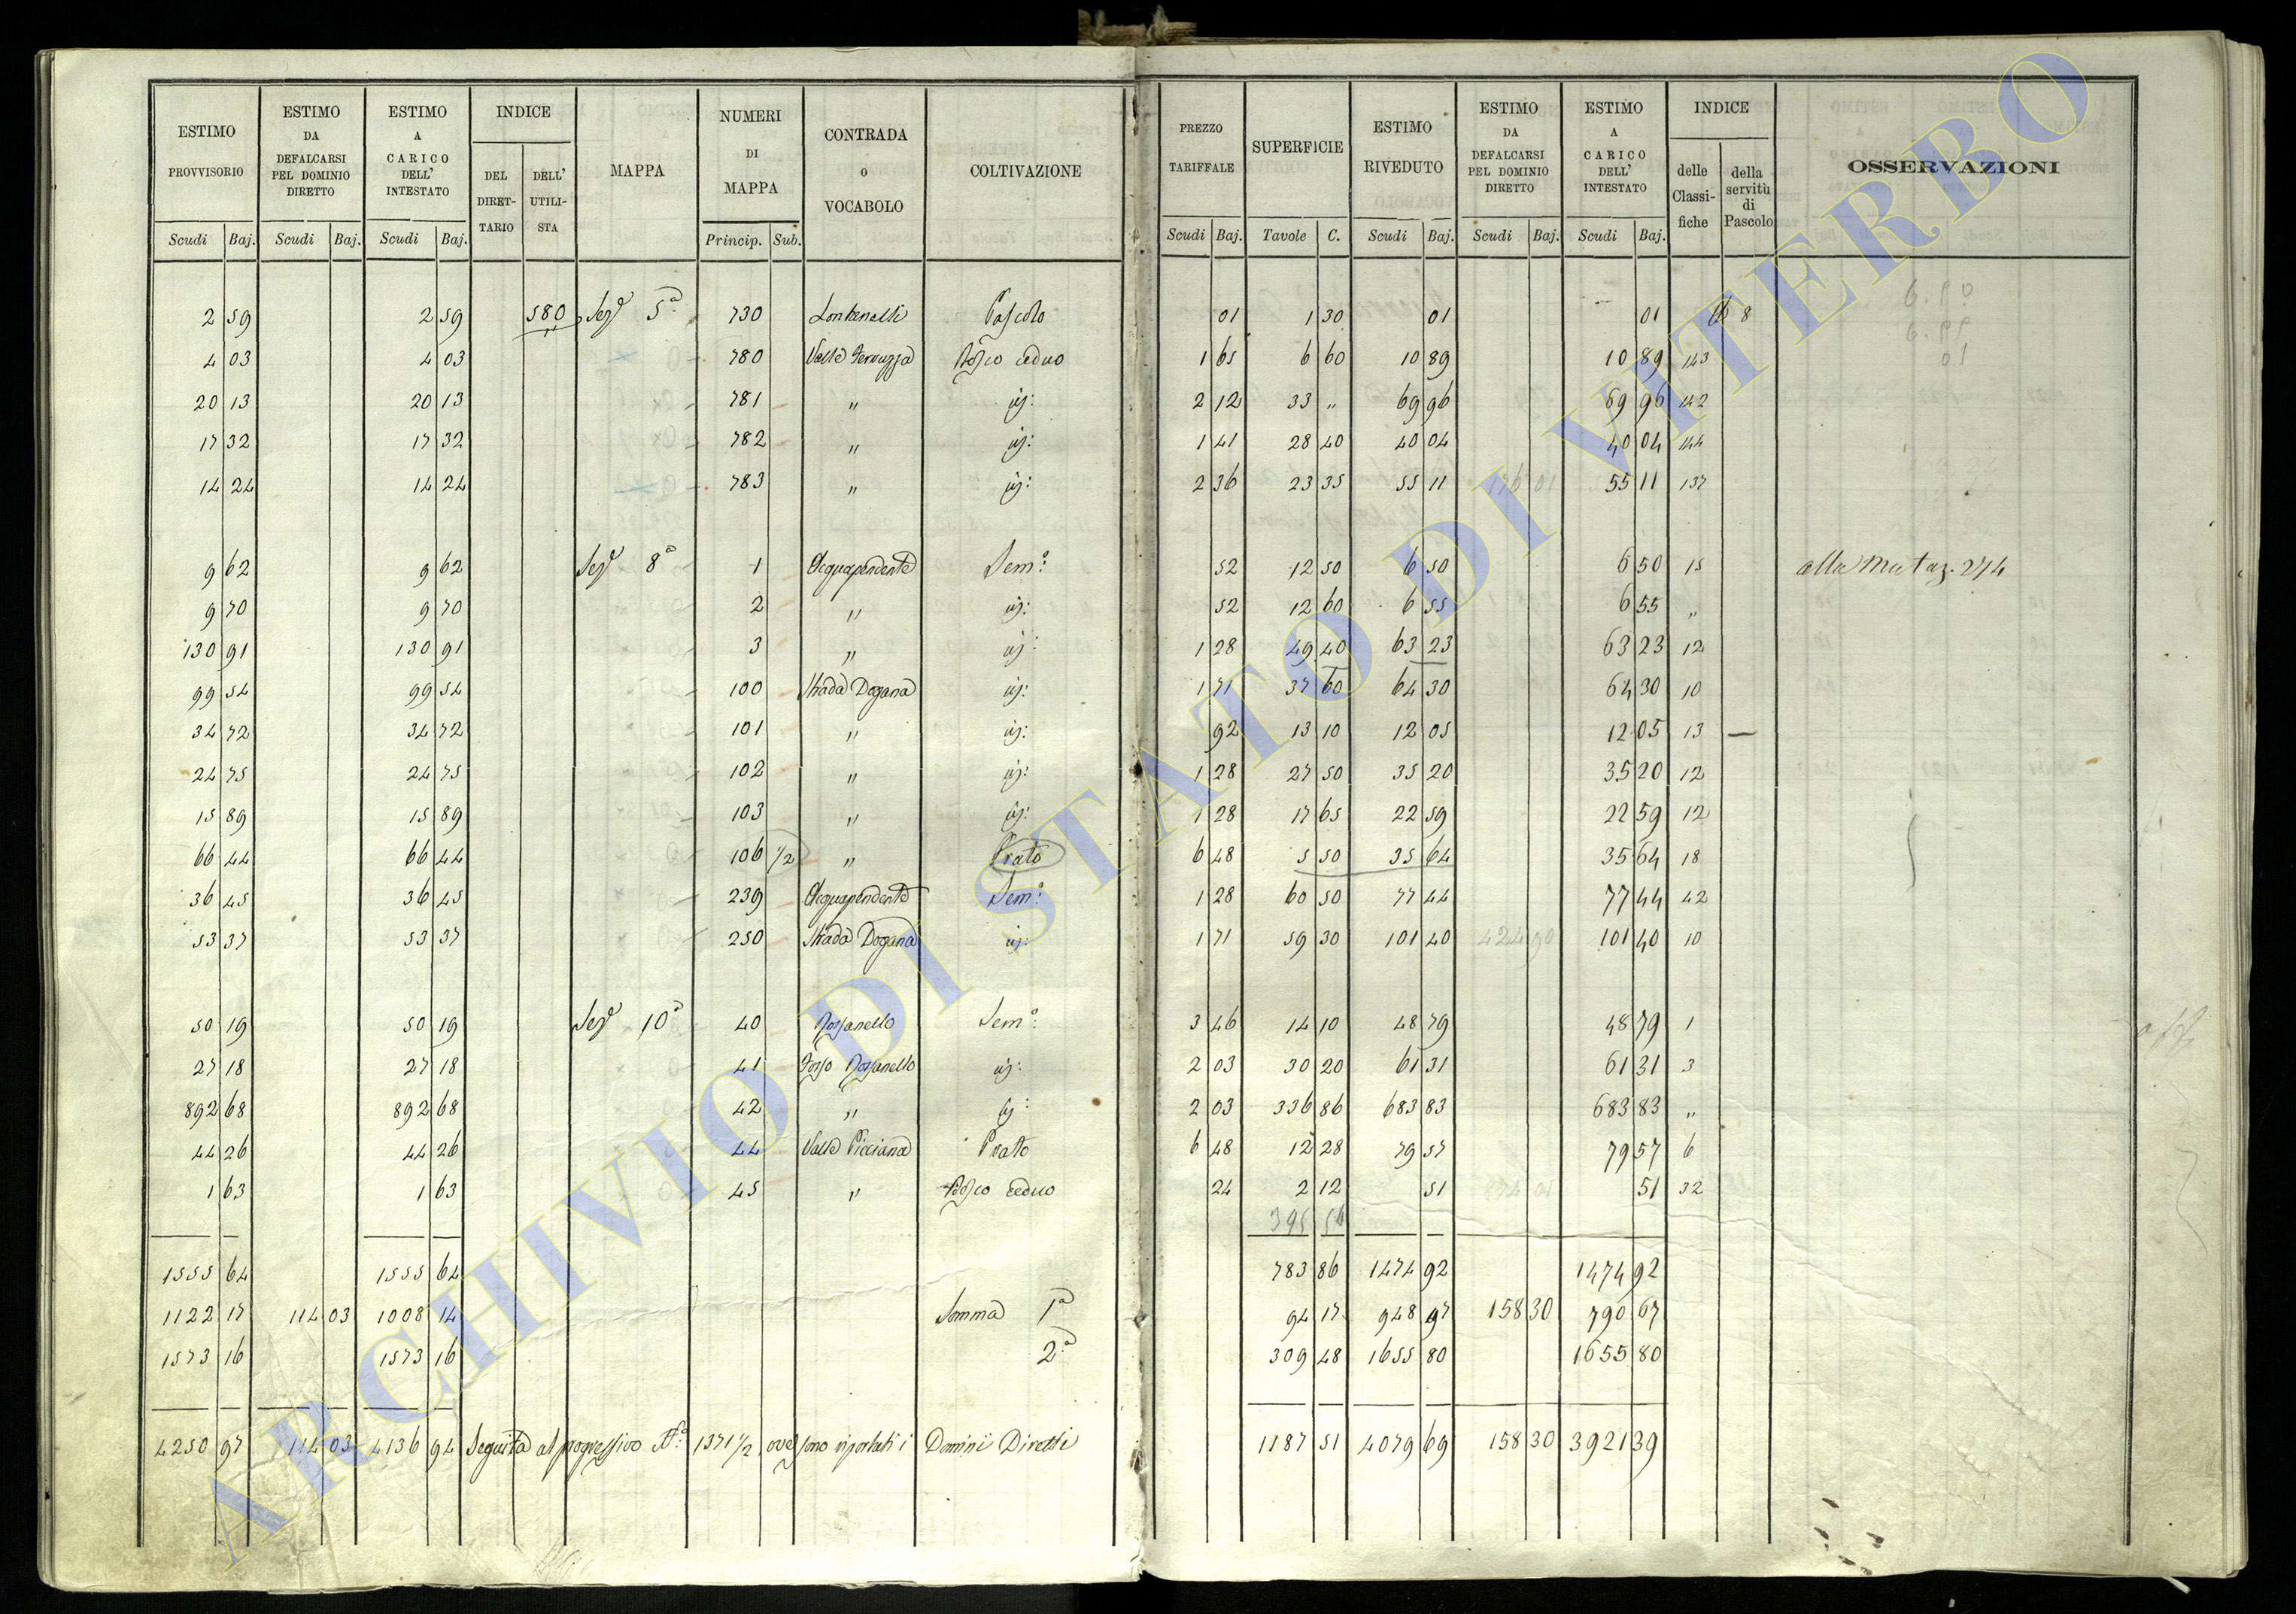 ESTIMO PROVVISORIO | ESTIMO DA DEFALCARSI PEL DOMINIO DIRETTO | ESTIMO A CARICO DELL' INTESTATO | INDICE DEL DIRETTARIO | DELL' UTILISTA | MAPPA | NUMERI DI MAPPA | CONTRADA o VOCABOLO | COLTIVAZIONE | PREZZO TARIFFALE | SUPERFICIE | ESTIMO RIVEDUTO | ESTIMO DA DEFALCARSI PEL DOMINIO DIRETTO | ESTIMO A CARICO DELL' INTESTATO | INDICE delle Classifiche | della servitù di Pascolo | OSSERVAZIONI
Scudi Baj. Scudi Baj. Scudi Baj. Princip. Sub. Scudi Baj. Tavole C. Scudi Baj. Scudi Baj. Scudi Baj.
2 59 2 59 580 Sez.e 5a 730 Pascolo 01 1 30 01 01 8
4 03 4 03 780 Valle Bosco ceduo 1 65 6 60 10 89 10 89 143
20 13 20 13 781 " id: 2 12 33 " 69 96 69 96 142
17 32 17 32 782 " id: 1 41 28 40 40 04 40 04 144
14 24 14 24 783 " id: 2 36 23 35 55 11 176 01 55 11 137
9 62 9 62 Sez.e 8a 1 Acquapendente Sem.o 52 12 50 6 50 6 50 15 alla Mutaz. 274
9 70 9 70 2 " id: 52 12 60 6 55 6 55 "
130 91 130 91 3 " id: 1 28 49 40 63 23 63 23 12
99 54 99 54 100 Strada Dogana id: 1 71 37 60 64 30 64 30 10
34 72 34 72 101 " id: 92 13 10 12 05 12 05 13 —
24 75 24 75 102 " id: 1 28 27 50 35 20 35 20 12
15 89 15 89 103 " id: 1 28 17 65 22 59 22 59 12
66 44 66 44 106 1/2 " Prato 6 48 5 50 35 64 35 64 18
36 45 36 45 239 Acquapendente Sem.o 1 28 60 50 77 44 77 44 42
53 37 53 37 250 Strada Dogana id: 1 71 59 30 101 40 424 90 101 40 10
50 19 50 19 Sez.e 10a 40 Rossanello Sem.o 3 46 14 10 48 79 48 79 1
27 18 27 18 41 Fosso Rossanello id: 2 03 30 20 61 31 61 31 3
892 68 892 68 42 " id: 2 03 336 86 683 83 683 83 "
44 26 44 26 44 Valle Picciana Prato 6 48 12 28 79 57 79 57 6
1 63 1 63 45 " Bosco ceduo 24 2 12 51 51 32
395 56
1555 64 1555 64 783 86 1474 92 1474 92
1122 17 114 03 1008 14 Somma 1a 94 17 948 97 158 30 790 67
1573 16 1573 16 2a 309 48 1655 80 1655 80
4250 97 114 03 4136 94 Seguita al progressivo N.o 1371 1/2, ove sono riportati i Dominî Diretti 1187 51 4079 69 158 30 3921 39
ARCHIVIO DI STATO DI VITERBO